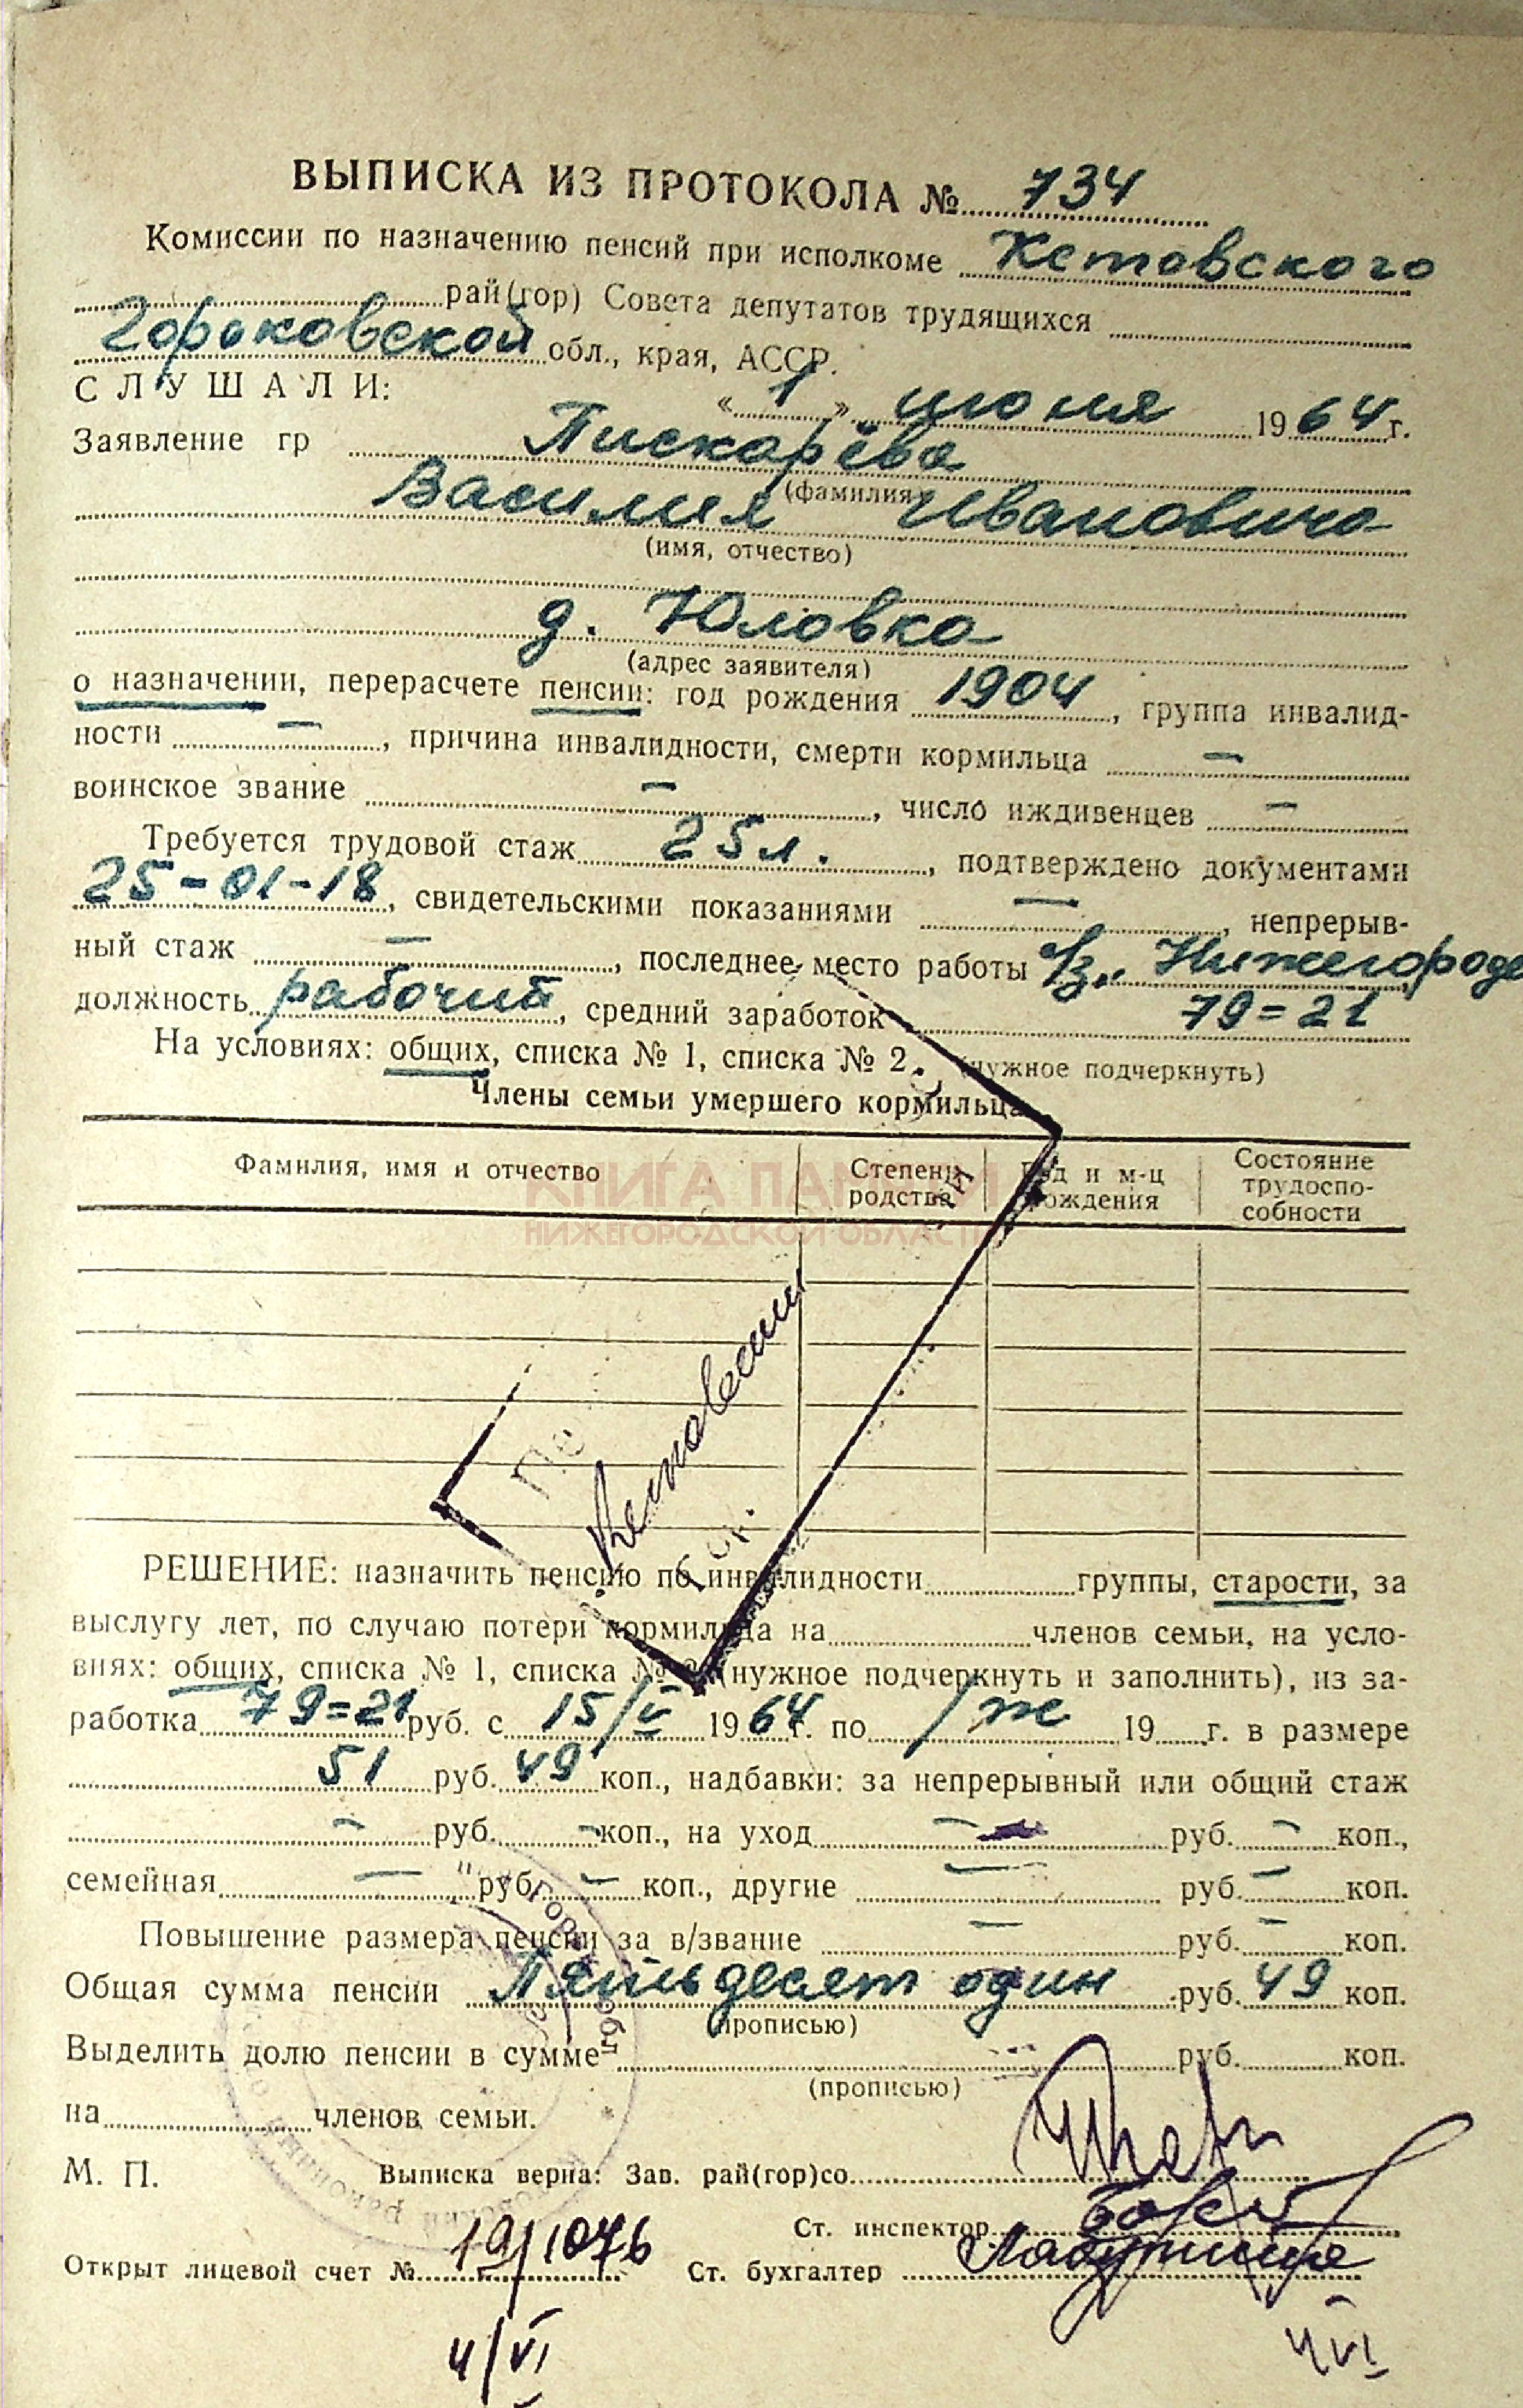 ВЫПИСКА ИЗ ПРОТОКОЛА № 734
Комиссии по назначению пенсий при исполкоме Кстовского
рай(гор) Совета депутатов трудящихся
Горьковской обл., края, АССР.
СЛУШАЛИ: «1» июня 1964 г.
Заявление гр Пискарёва
(фамилия)
Василия Ивановича
(имя, отчество)
д. Юловка
(адрес заявителя)
о назначении, перерасчете пенсии: год рождения 1904, группа инвалид-
ности —, причина инвалидности, смерти кормильца —
воинское звание —, число иждивенцев —
Требуется трудовой стаж 25 л., подтверждено документами
25-01-18, свидетельскими показаниями —, непрерыв-
ный стаж —, последнее место работы Нижегородец
должность рабочий, средний заработок 79=21
На условиях: общих, списка № 1, списка № 2. (нужное подчеркнуть)
Члены семьи умершего кормильца
Фамилия, имя и отчество Степень родства Год и м-ц рождения Состояние трудоспо-собности
КНИГА ПАМЯТИ
НИЖЕГОРОДСКОЙ ОБЛАСТИ
Кстовский
РЕШЕНИЕ: назначить пенсию по инвалидности группы, старости, за
выслугу лет, по случаю потери кормильца на членов семьи, на усло-
виях: общих, списка № 1, списка № 2 (нужное подчеркнуть и заполнить), из за-
работка 79=21 руб. с 15/V 1964 г. по п/ж 19 г. в размере
51 руб. 49 коп., надбавки: за непрерывный или общий стаж
— руб. — коп., на уход — руб. — коп.,
семейная — руб. — коп., другие — руб. — коп.
Повышение размера пенсии за в/звание — руб. — коп.
Общая сумма пенсии Пятьдесят один руб. 49 коп.
(прописью)
Выделить долю пенсии в сумме руб. коп.
(прописью)
на членов семьи.
М. П. Выписка верна: Зав. рай(гор)со
Ст. инспектор
Открыт лицевой счет № 19/1076 Ст. бухгалтер
4/VI 4/VI